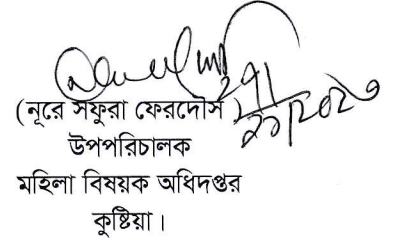 (নূরে সফুরা ফেরদৌস)
উপপরিচালক
মহিলা বিষয়ক অধিদপ্তর
কুষ্টিয়া।